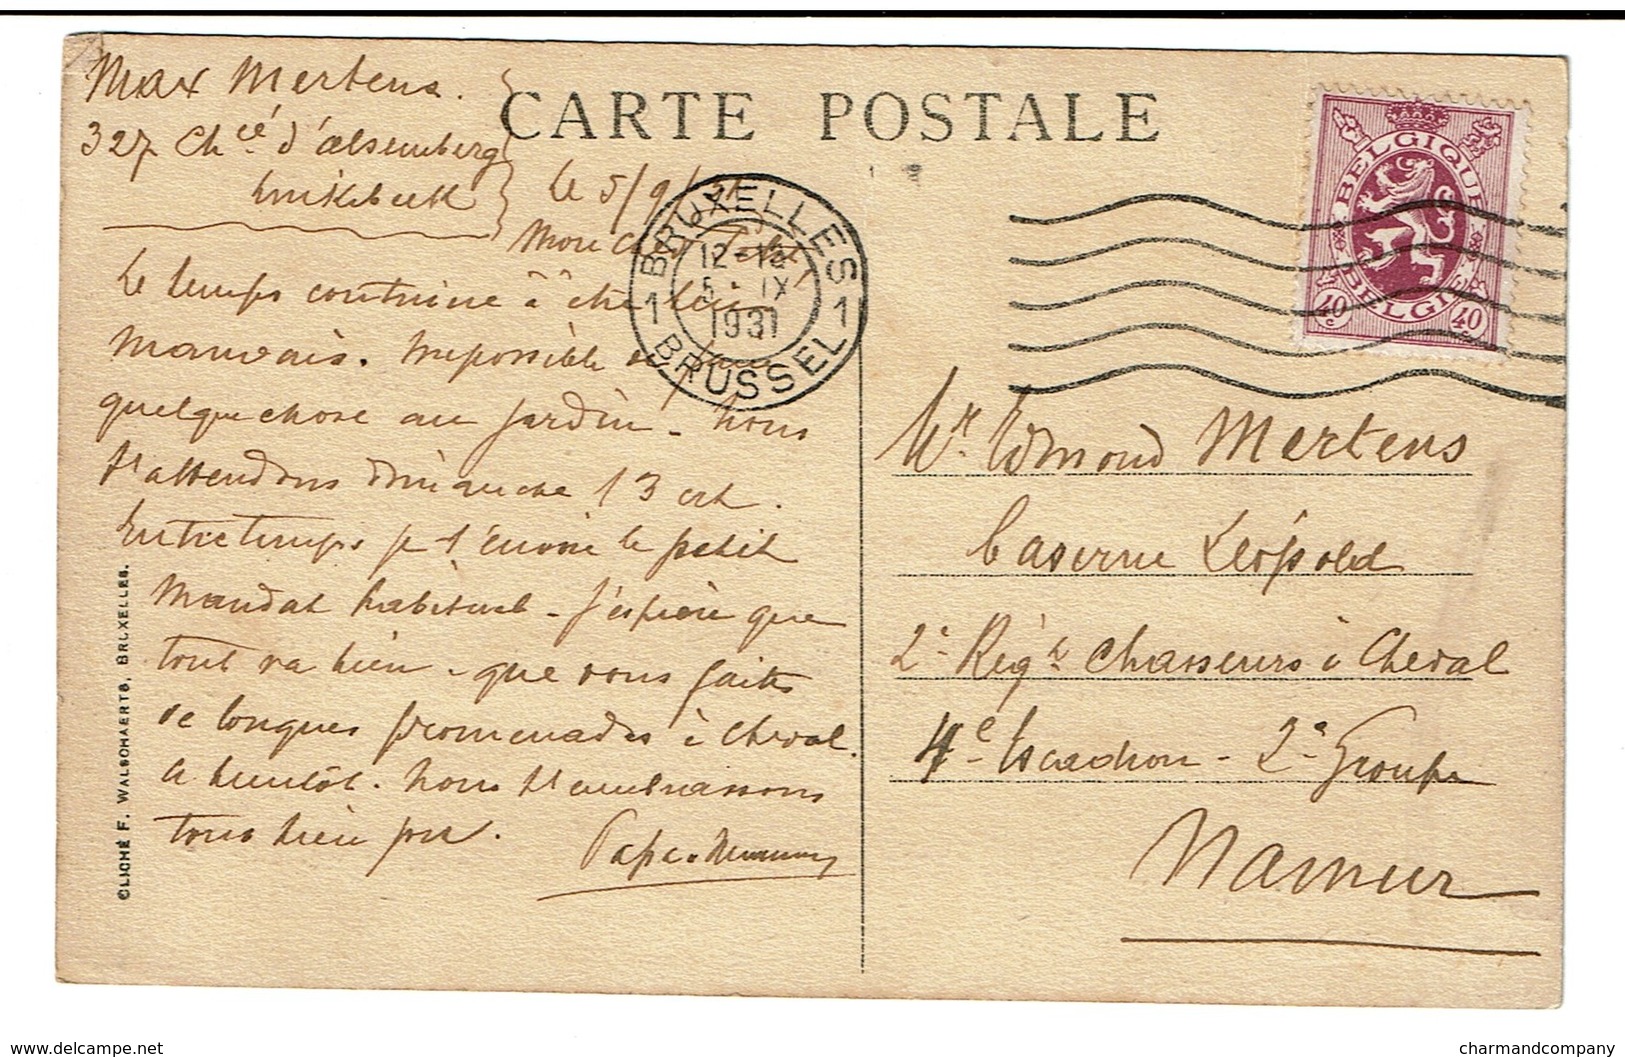 Max Mertens.
327 Chcé. d'Alsemberg
Linkebeek
CARTE POSTALE
Le 5/9/31
Mon Cher
Le temps continue à être bien
mauvais. Impossible de faire
quelque chose au jardin. Nous
t'attendons dimanche 13 crt.
Entretemps je t'envoie le petit
mandat habituel - J'espère que
tout va bien - que vous faites
de longues promenades à cheval.
A bientôt. Nous t'embrassons
tous bien fort.
Papa Maman
BRUXELLES
12-13
5 - IX
1931
1 1
BRUSSEL
BELGIQUE
BELGIË
40c 40
Mr. Edmond Mertens
Caserne Léopold
2e Régt Chasseurs à Cheval
4e Escadron - 2e Groupe
Namur
CLICHÉ F. WALSCHAERTS, BRUXELLES.
delcampe.net
charmandcompany